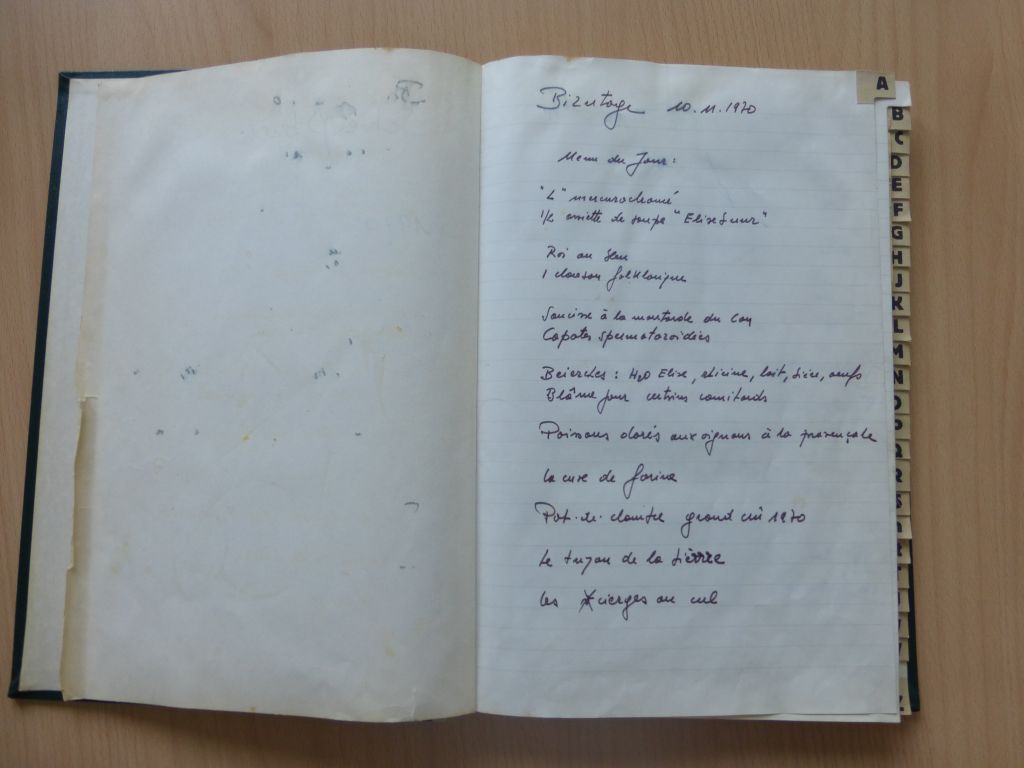 Bizutage 10.11.1970
Menu du Jour:
"L" mercurochromé
1/2 assiette de soupe "Elisesuur"
Roi au
1 chanson folklorique
Saucisse à la moutarde du
Capotes spermatozoidées
: H2O Elise, ricine, lait, bière, oeufs
Blâme pour certains comitards
Poissons dorés aux oignons à la provençale
la cure de farine
Pot-de-chambre grand crû 1970
le tuyau de la bierre
les cierges au cul
A
B
C
D
E
F
G
H
J
K
L
M
N
O
P
Q
R
S